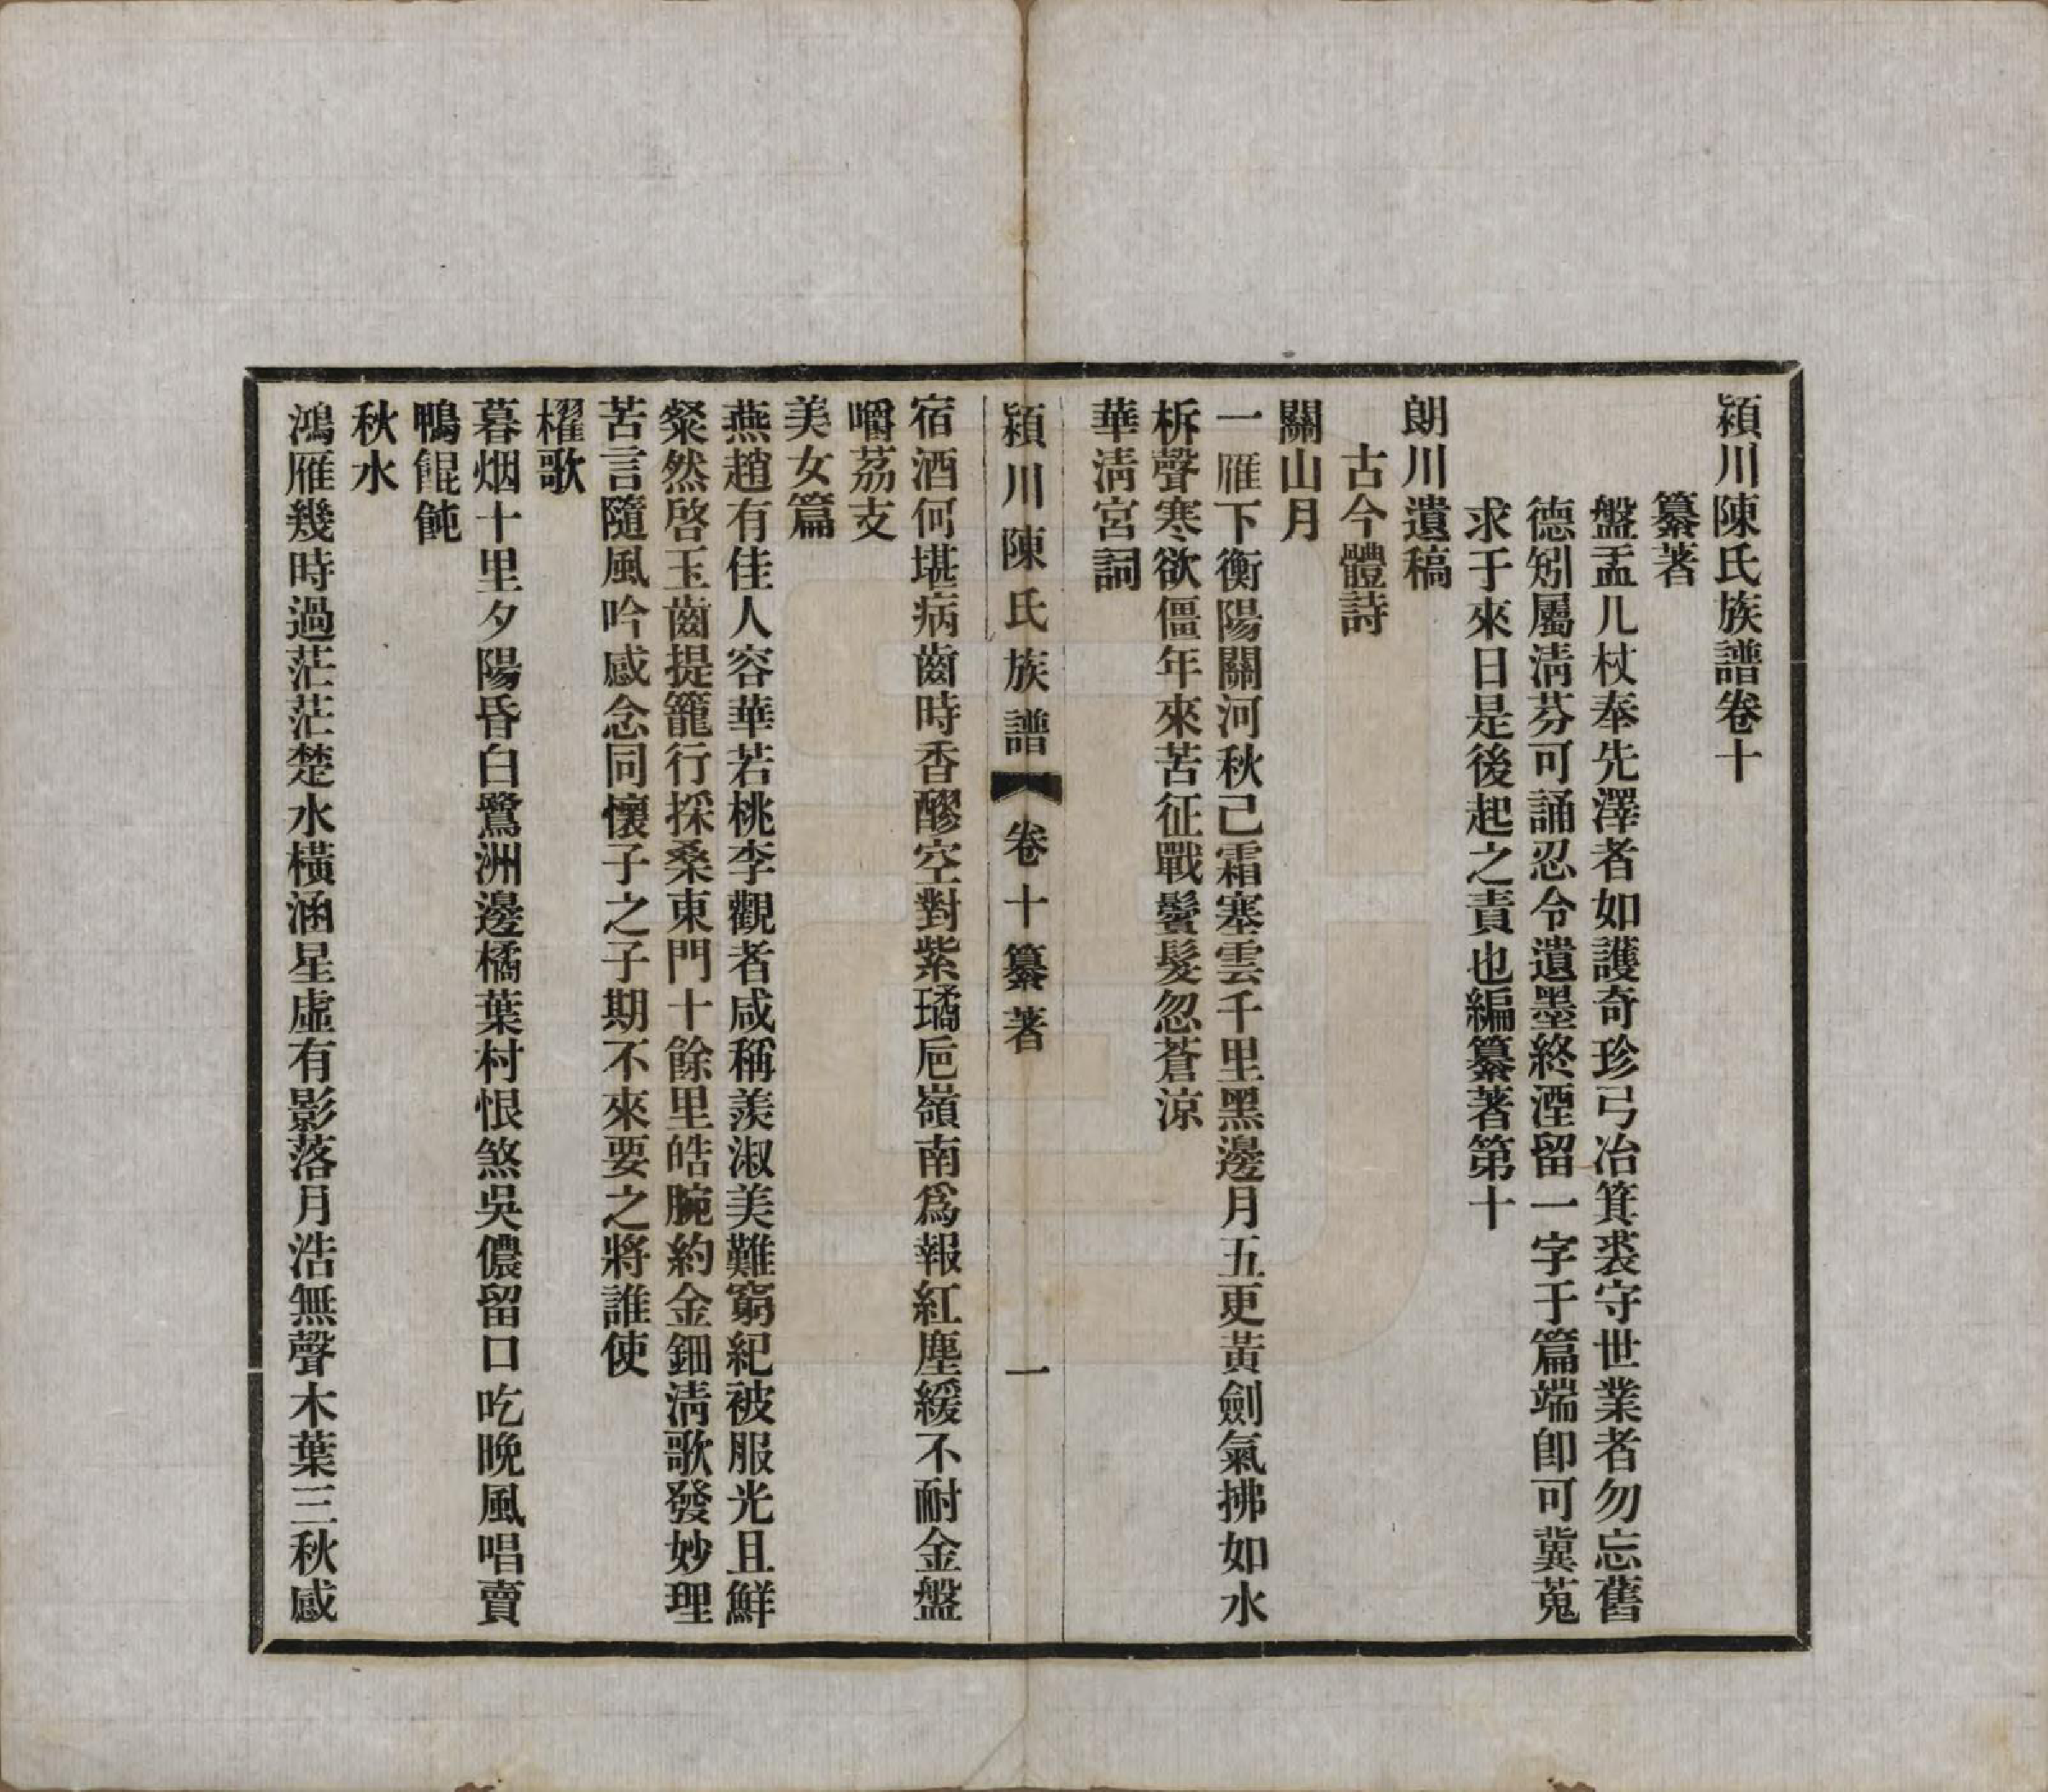 潁川陳氏族譜卷十
纂著
盤盂几杖奉先澤者如護奇珍弓冶箕裘守世業者勿忘舊
德矧屬淸芬可誦忍令遺墨終湮留一字于篇端卽可冀蒐
求于來日是後起之責也編纂著第十
朗川遺稿
古今體詩
關山月
一雁下衡陽關河秋己霜塞雲千里黑邊月五更黃劍氣拂如水
柝聲寒欲僵年來苦征戰鬢髮忽蒼涼
華淸宮詞
潁川陳氏族譜 卷十纂著 一
宿酒何堪病齒時香醪空對紫璚巵嶺南爲報紅塵緩不耐金盤
嚼荔支
美女篇
燕趙有佳人容華若桃李觀者咸稱羨淑美難窮紀被服光且鮮
粲然啓玉齒提籠行採桑東門十餘里皓腕約金鈿淸歌發妙理
苦言隨風吟感念同懷子之子期不來要之將誰使
櫂歌
暮烟十里夕陽昏白鷺洲邊橘葉村恨煞吳儂留口吃晚風唱賣
鴨餛飩
秋水
鴻雁幾時過茫茫楚水橫涵星虛有影落月浩無聲木葉三秋感